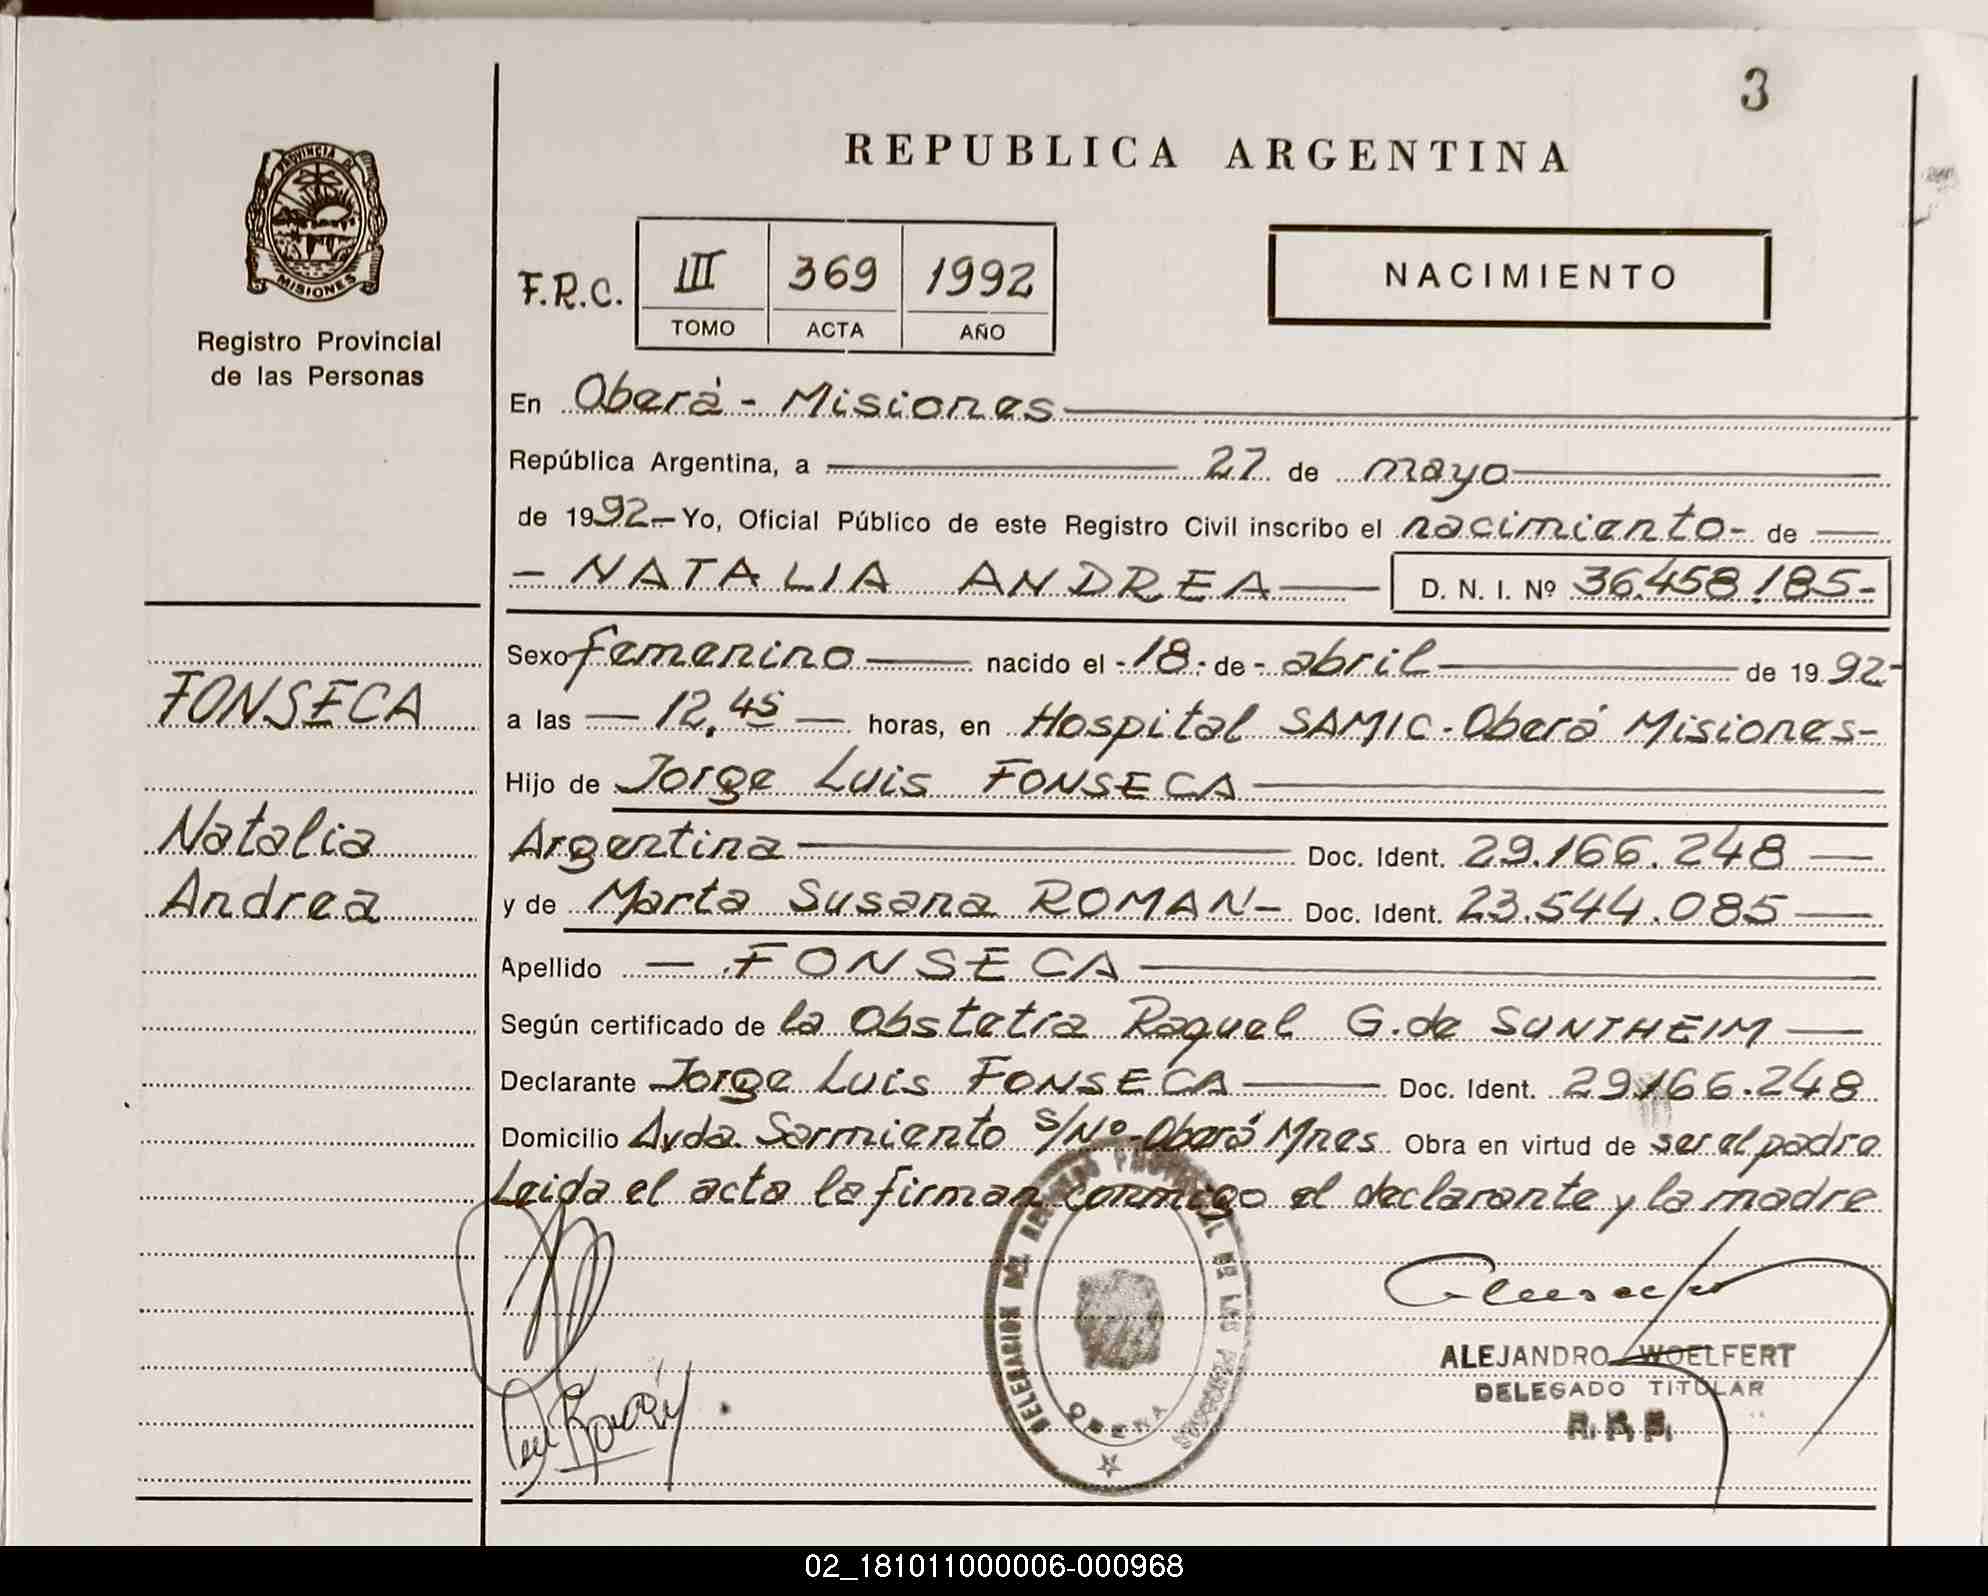 3
REPUBLICA ARGENTINA
PROVINCIA DE
MISIONES
Registro Provincial
de las Personas
F.R.C. III 369 1992
TOMO ACTA AÑO
NACIMIENTO
En Oberá - Misiones
República Argentina, a 27 de mayo
de 1992.- Yo, Oficial Público de este Registro Civil inscribo el nacimiento- de
- NATALIA ANDREA D. N. I. Nº 36.458.185-
Sexo femenino nacido el -18.- de - abril de 1992-
FONSECA
a las 12,45 horas, en Hospital SAMIC - Oberá Misiones-
Hijo de Jorge Luis FONSECA
Natalia
Argentina Doc. Ident. 29.166.248
Andrea
y de Marta Susana ROMAN- Doc. Ident. 23.544.085
Apellido - FONSECA
Según certificado de la Obstetra Raquel G. de SUNTHEIM
Declarante Jorge Luis FONSECA Doc. Ident. 29.166.248
Domicilio Avda. Sarmiento s/Nº-Oberá Mnes. Obra en virtud de ser el padre
Leida el acta la firman conmigo el declarante y la madre
ALEJANDRO WOELFERT
DELEGADO TITULAR
R. P. P.
02_181011000006-000968